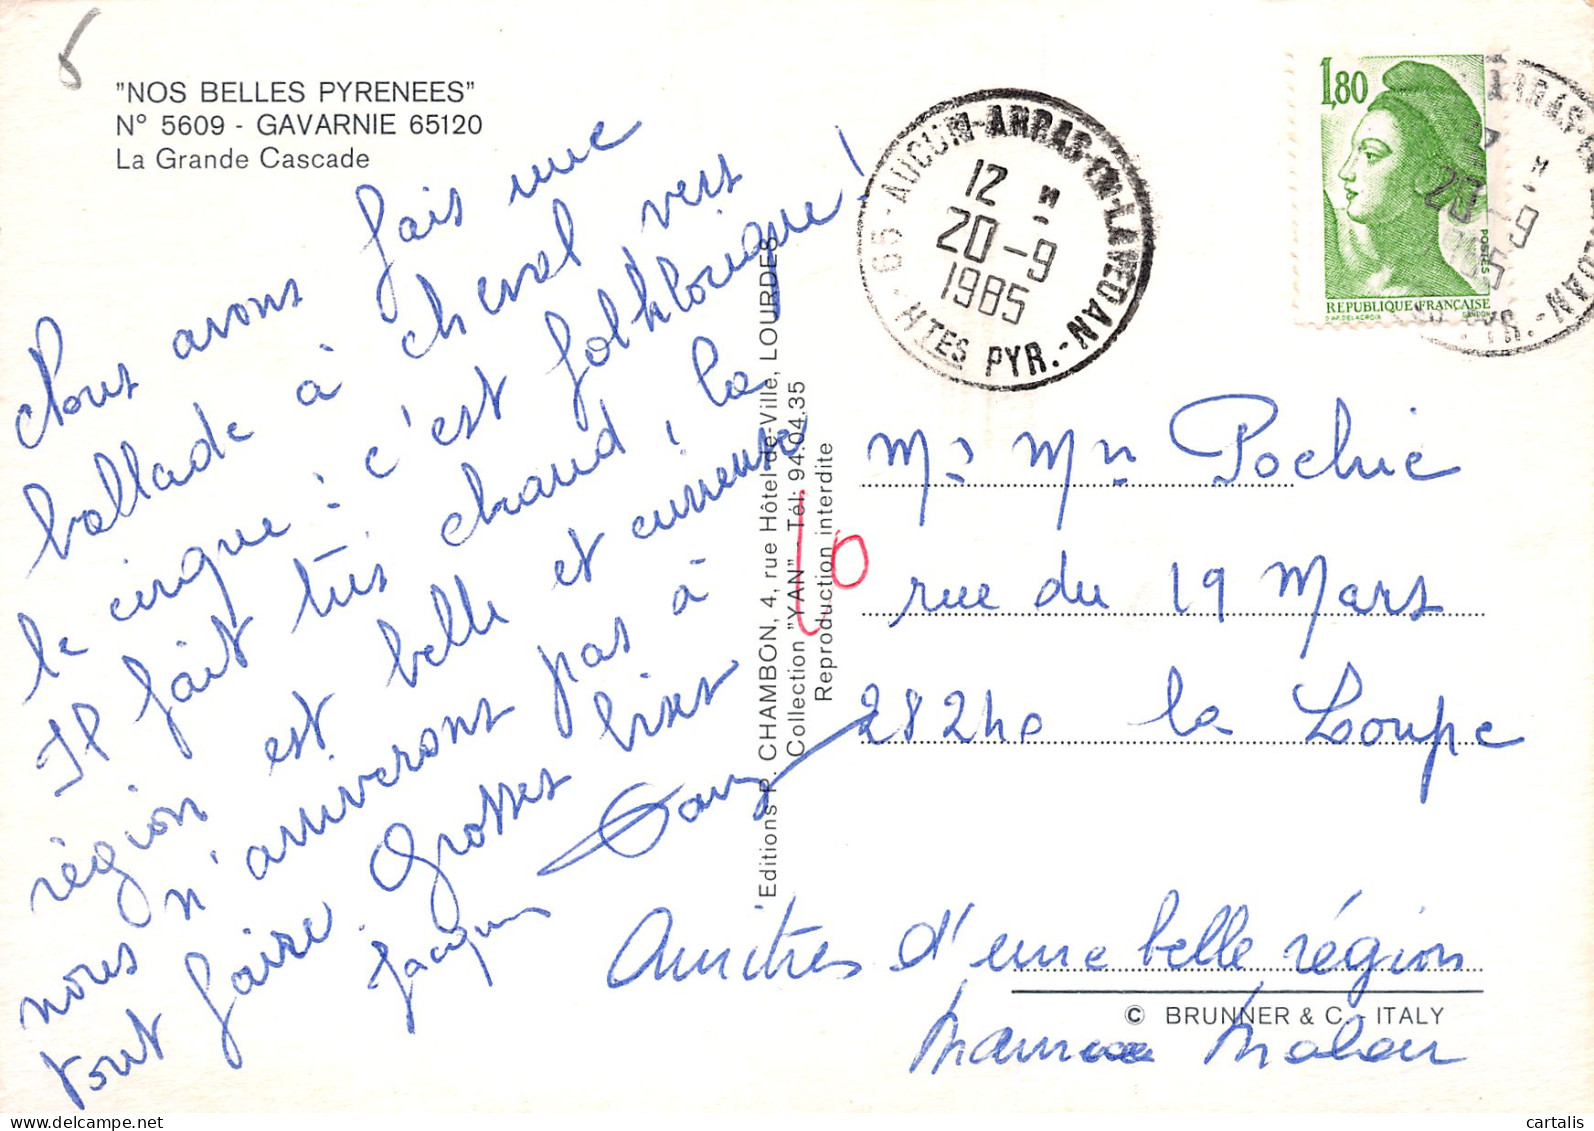 "NOS BELLES PYRENEES"
N° 5609 - GAVARNIE 65120
La Grande Cascade
Nous avons fais une
ballade à cheval vers
le cirque : c'est folklorique !
Il fait très chaud ; la
région est belle et
nous n'arriverons pas à
tout faire. Grosses bises
Jacques
Editions P. CHAMBON, 4, rue Hôtel-de-Ville, LOURDES
Collection "YAN" - Tél: 94.04.35
Reproduction interdite
10
65 - AUCUN-ARRAS-EN-LAVEDAN
12 H
20-9
1985
HTES PYR.
1,80
POSTES
REPUBLIQUE FRANÇAISE
D'AP. DELACROIX GANDON
20-9
Mr Mm Pochic
rue du 19 Mars
28240 la Loupe
Amitiés d'une belle région
BRUNNER & C. - ITALY
©
cartalis
delcampe.net